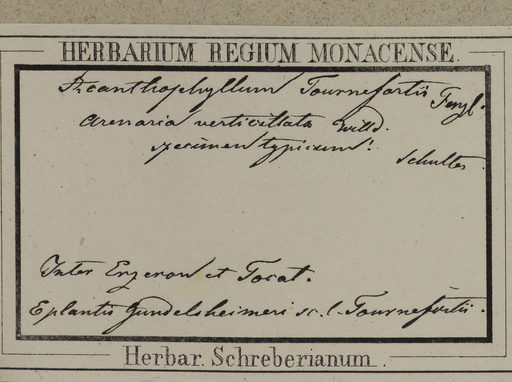 HERBARIUM REGIUM MONACENSE.
Acanthophyllum Tournefortii Fenzl.
Arenaria verticillata Willd.
specimen typicum!
Schultes.
Inter Erzeron et Tocat.
E plantis Gundelsheimeri sc. l. Tournefortii.
Herbar. Schreberianum.